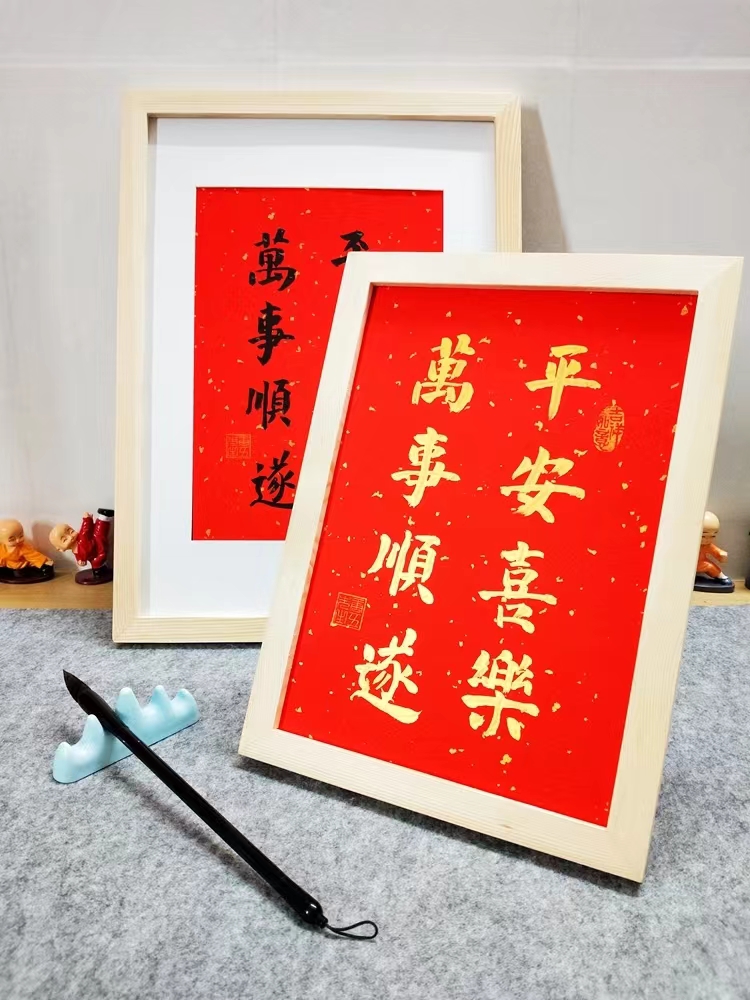 平安喜樂
萬事順遂
平
萬事順遂